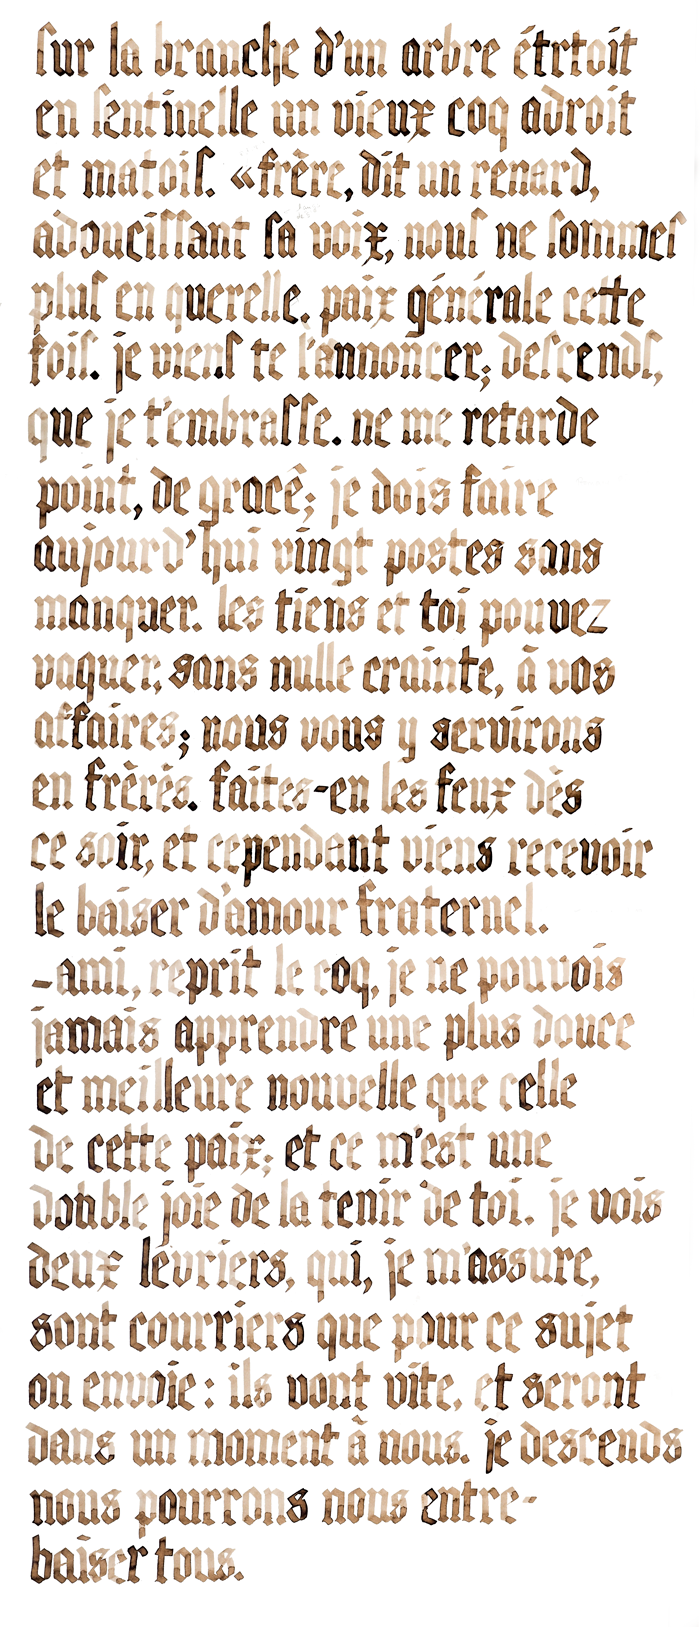 ſur la branche d'un arbre étrtoit
en ſentinelle un vieux coq adroit
et matoiſ. «frère, dit un renard,
adouciſſant ſa voix, nouſ ne ſommeſ
pluſ en querelle. paix générale cette
foiſ. je vienſ te l'annoncer; deſcendſ,
que je t'embraſſe. ne me retarde
point, de gracé; je dois faire
aujourd'hui vingt postes sans
manquer. les tiens et toi pouvez
vaquer, sans nulle crainte, à vos
affaires; nous vous y servirons
en frèrés. faites-en les feux dès
ce soir, et cependant viens recevoir
le baiser d'amour fraternel.
-ami, reprit le coq, je ne pouvois
jamais apprendre une plus douce
et meilleure nouvelle que celle
de cette paix; et ce m'est une
double joie de la tenir de toi. je vois
deux lévriers, qui, je m'assure,
sont courriers que pour ce sujet
on envoie: ils vont vite, et seront
dans un moment à nous. je descends
nous pourrons nous entre-
baiser tous.